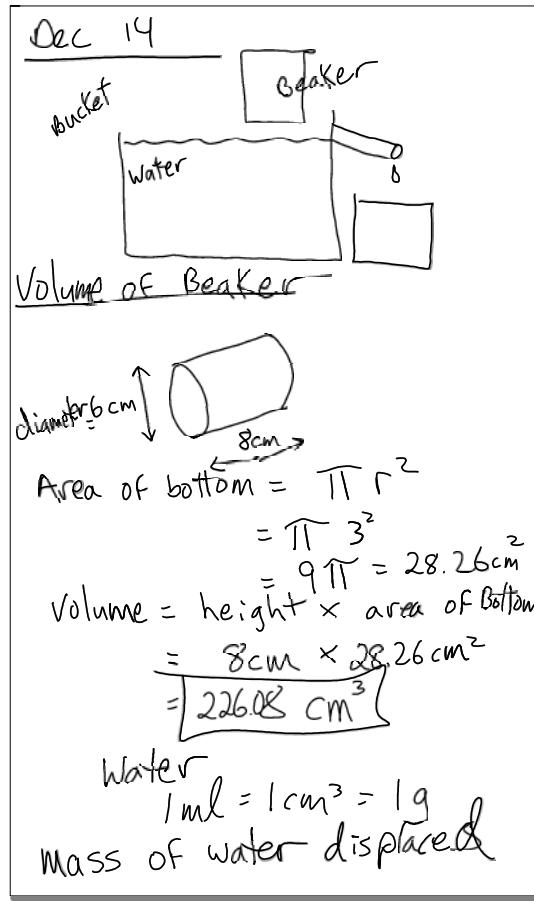 Dec 14
Beaker
Bucket
Water
Volume of Beaker
diameter=6cm
8cm
Area of bottom = π r²
= π 3²
= 9π = 28.26cm²
Volume = height × area of Bottom
= 8cm × 28.26cm²
= 226.08 cm³
Water
1ml = 1cm³ = 1g
mass of water displaced